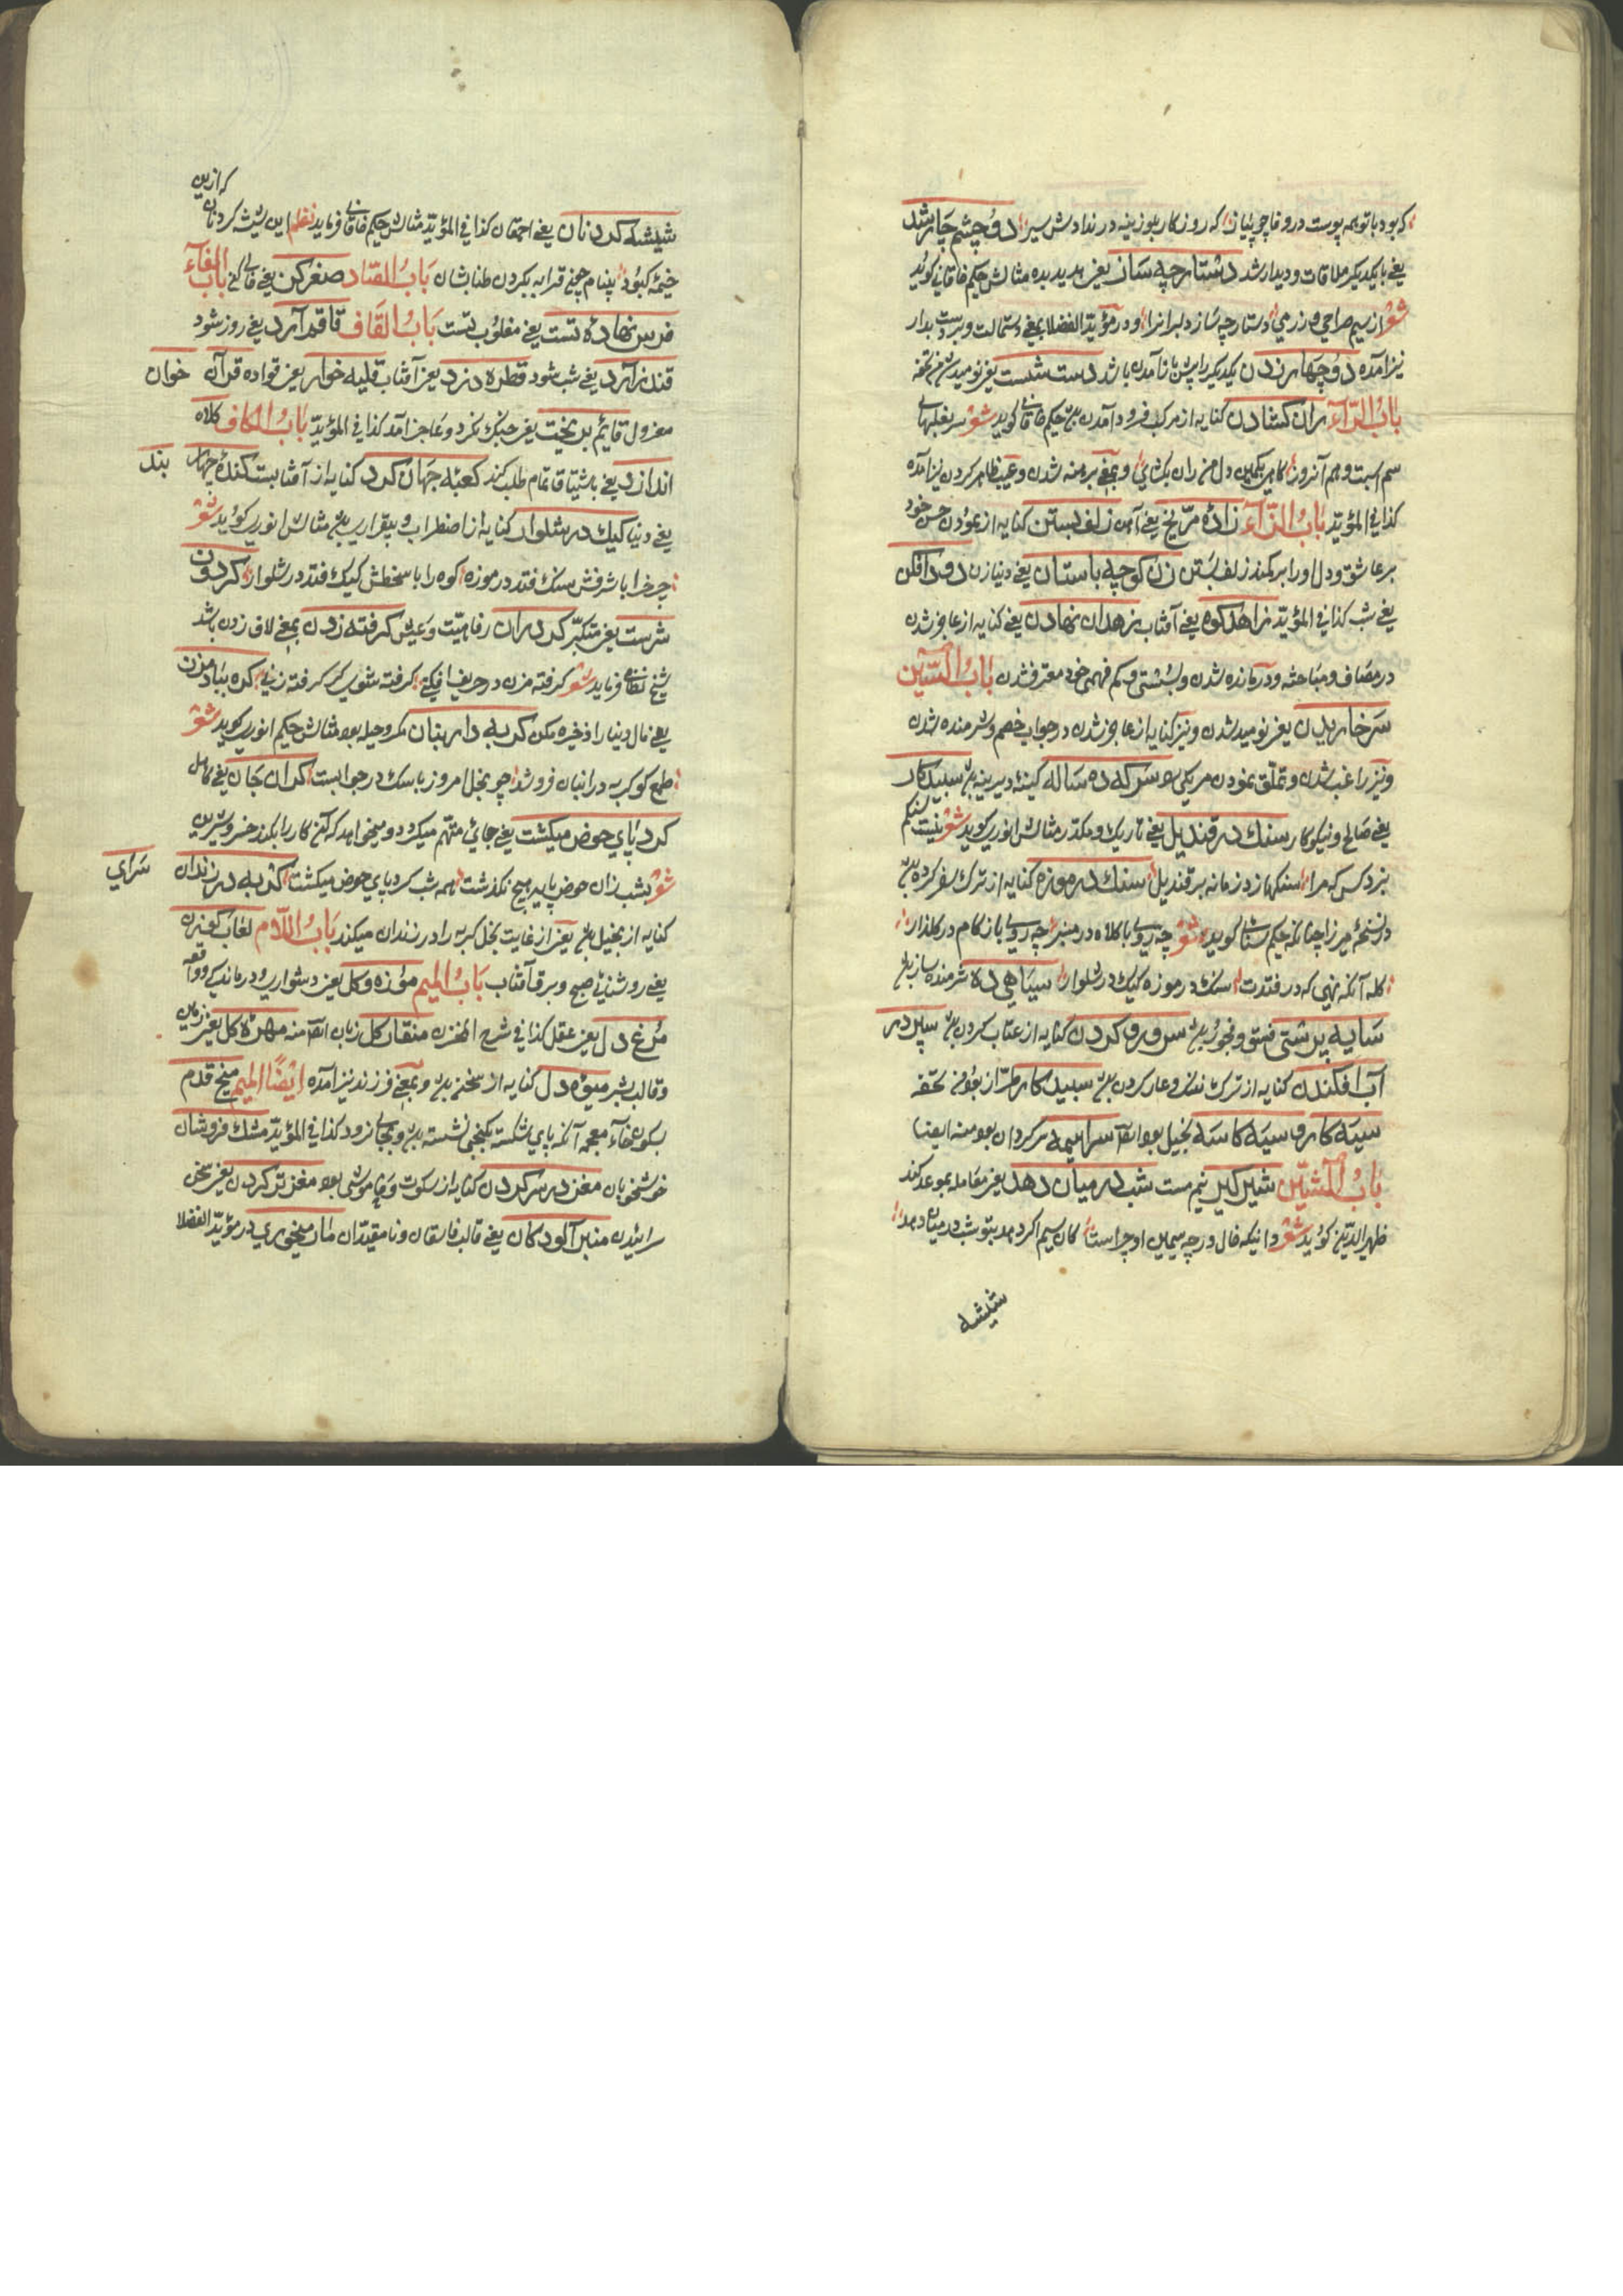 که بود با تو همه پوست در وفا چو پیاز که روزگار بلوزینه در ندادش سیر دو چشم چار شد
یعنی با یکدیکر ملاقات و دیدار شد دستارچه سان یعنی هدیه بده مثالش حکیم خاقانی کوید
شعر از سیم صراحی و زر می دستارچه ساز دلبرانرا و در مؤید الفضلا بمعنی دستمالت و بردست بدار
نیز آمده دو چهار زدن یکدیکر را پیش باز آمدن باشد دست شست یعنی نومید شد من تحفه
باب الراء ران کشادن کنایه از مرکب فرود آمدن حکیم خاقانی کوید شعر
سم اسبت و هم آنروز دل من ران بکشای و بمعنی برهنه شدن و عیب ظاهر کردن نیز آمده
کذا فی المؤید باب الزاء زادۀ مریخ یعنی آهن زلف بستن کنایه از نمودن حسن خود
بر عاشق و دل او را بر کمند زلف بستن زن کوچه باستان یعنی دنیا زن دود افکن
یعنی شب کذا فی المؤید زاهد کوه یعنی آفتاب زهدان نهادن یعنی کنایه از عاجز شدن
در مصاف و مباحثه و درمانده شدن و بسستی و کم فهمی خود معترف شدن باب السین
سر خاریدن یعنی نومید شدن و نیز کنایه از عاجز شدن در جواب خصم و شرمنده شدن
و نیز راغب شدن و تملق نمودن سرکه ده ساله کینه دیرینه سبید کار
یعنی صالح و نیکوکار سنك در قندیل یعنی تاریك و مکدر مثالش انوری کوید شعر نیست یکدم
نزد کس که مرا سنکها زد زمانه بر قندیل سنك در موزه کنایه از ترك سفر کرده
در نسخۀ میرزا چنانکه حکیم سنائی کوید شعر چه روی با کلاه در منبر چه روی باز کام در کلزار
کله آنکه نهی که در فتدت سنك در موزه کیك در شلوار سیاهی ده شرمنده ساز
سایه پرستی فسق و فجور سرو رو کردن کنایه از عتاب کردن سپر در
آب افکندن کنایه از ترك ننك و عار کردن سبید کار تحفه
سیه کار و سیه کاسه بخیل بود ایضا سراسیمه سرکردان بود منه ایضا
باب الشین شیرکیر نیم مست شب در میان دهد یعنی معامله بموعد کند
ظهیر الدین کوید شعر اوچراست کان سیم اکر دهد بتو شب در میان دهد
شیشه
که ازین
شیشه کردنان یعنی احمقان کذا فی المؤید مثالش حکیم خاقانی فرماید نظم این شیشه کردنان
خیمۀ کبود بینام چنح قرابه بکردن طنابشان باب الصاد صفر کن یعنی خالی کن باب الفاء
فرس نهادۀ تست یعنی مغلوب تست باب القاف قاقم آرد یعنی روز شود
قندز آرد یعنی شب شود قطرۀ دزد یعنی آفتاب قلیه خوار یعنی قواده قرآن خوان
معزول قائم بریخت یعنی جنك نکرد و عاجز آمد کذا فی المؤید باب الکاف کلاه
اندازد یعنی باشتیاق تمام طلب کند کعبۀ جهان کرد کنایه از آفتابست کندۀ چهار بند
یعنی دنیا کیك در شلوار کنایه از اضطراب و بیقراری مثالش انوری کوید شعر
چرخ را با شرفش سنك فتد در موزه کوه را با سخطش کیك فتد در شلوار کردون
شرست یعنی متکبر کردران رفاهیت و عیش کرفته زدن بمعنی لاف زدن باشد
شیخ نظامی فرماید شعر کرفته مزن در حریف افکنی کرفته شوی کر کرفته زنی کره بنیاد مزن
یعنی مال دنیا را ذخیره مکن کربه دار انبان مکر و حیله بود مثالش حکیم انوری کوید شعر
طمع کو کربه در انبان فروشد چو بخل امروز با سك در جوابست کران جان یعنی کاهل
کرد پای حوض میکشت یعنی جائی متهم میکرد و میخواهد که آن کار را بکند خسرو شیرین
شعر بشب زان حوض پایه هیچ نکذشت همه شب کرد پای حوض میکشت کربه در زندان سرای
کنایه از بخیل یعنی از غایت بخل کربه را در زندان میکند باب اللام لعاب کوزن
یعنی روشنائی صبح و برق آفتاب باب المیم موزه و کل یعنی دشواری و درماندکی و واقعه
مرغ دل یعنی عقل کذا فی شرح المخزن منقار کل زبان ایضا منه مهرۀ کل یعنی زمین
و قالب بشر میوۀ دل کنایه از سخن و بمعنی فرزند نیز آمده ایضا المیم میخ قدم
بسکون خاء معجمه آنکه پای شکسته بکنجی نشسته و بجائی نرود کذا فی المؤید مشك فروشان
خوشخویان مغز در سر کردن کنایه از سکوت و خاموشی بود مغز تر کردن یعنی سخن
رائیدن منبر آلودکان یعنی قالب فاسقان و نامقیدان مان میخوری در مؤید الفضلا